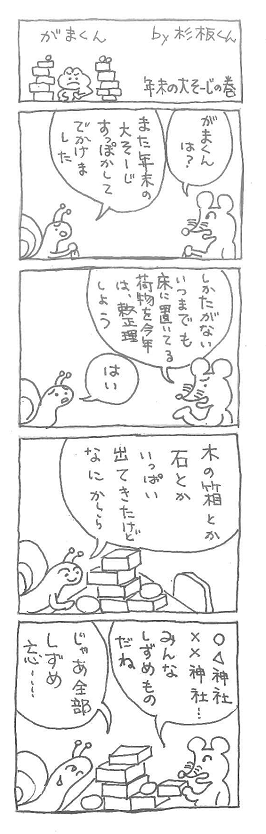 がまくん by 杉板くん
年末の大そーじの巻
がまくん
は？
また年末の
大そーじ
すっぽかして
でかけま
した
しかたがない
いつまでも
床に置いてる
荷物を今年
は、整理
しよう
はい
木の箱とか
石とか
いっぱい
出てきたけど
なにかしら
○△神社
××神社…
みんな
しずめもの
だね
じゃあ全部
しずめ
忘……